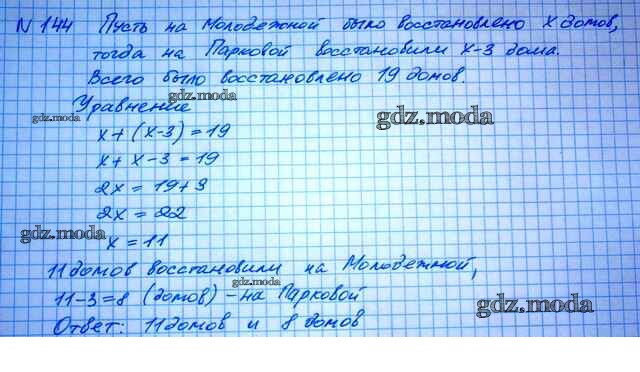 N 144 Пусть на Молодежной было восстановлено x домов,
тогда на Парковой восстановили x-3 дома.
Всего было восстановлено 19 домов.
gdz.moda
Уравнение
gdz.moda
gdz.moda
x+(x-3)=19
x+x-3=19
2x=19+3
2x=22
gdz.moda
x=11
11 домов восстановили на Молодежной,
gdz.moda
11-3=8 (домов) - на Парковой
gdz.moda
Ответ: 11 домов и 8 домов